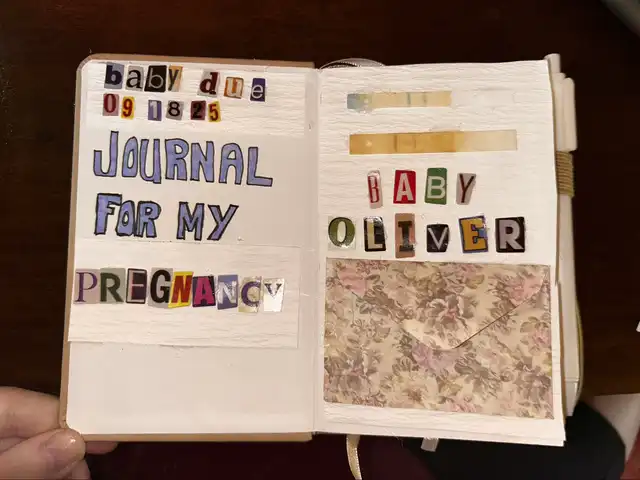 baby due
09 18 25
JOURNAL
FOR MY
PREGNANCY
BABY
OLIVER